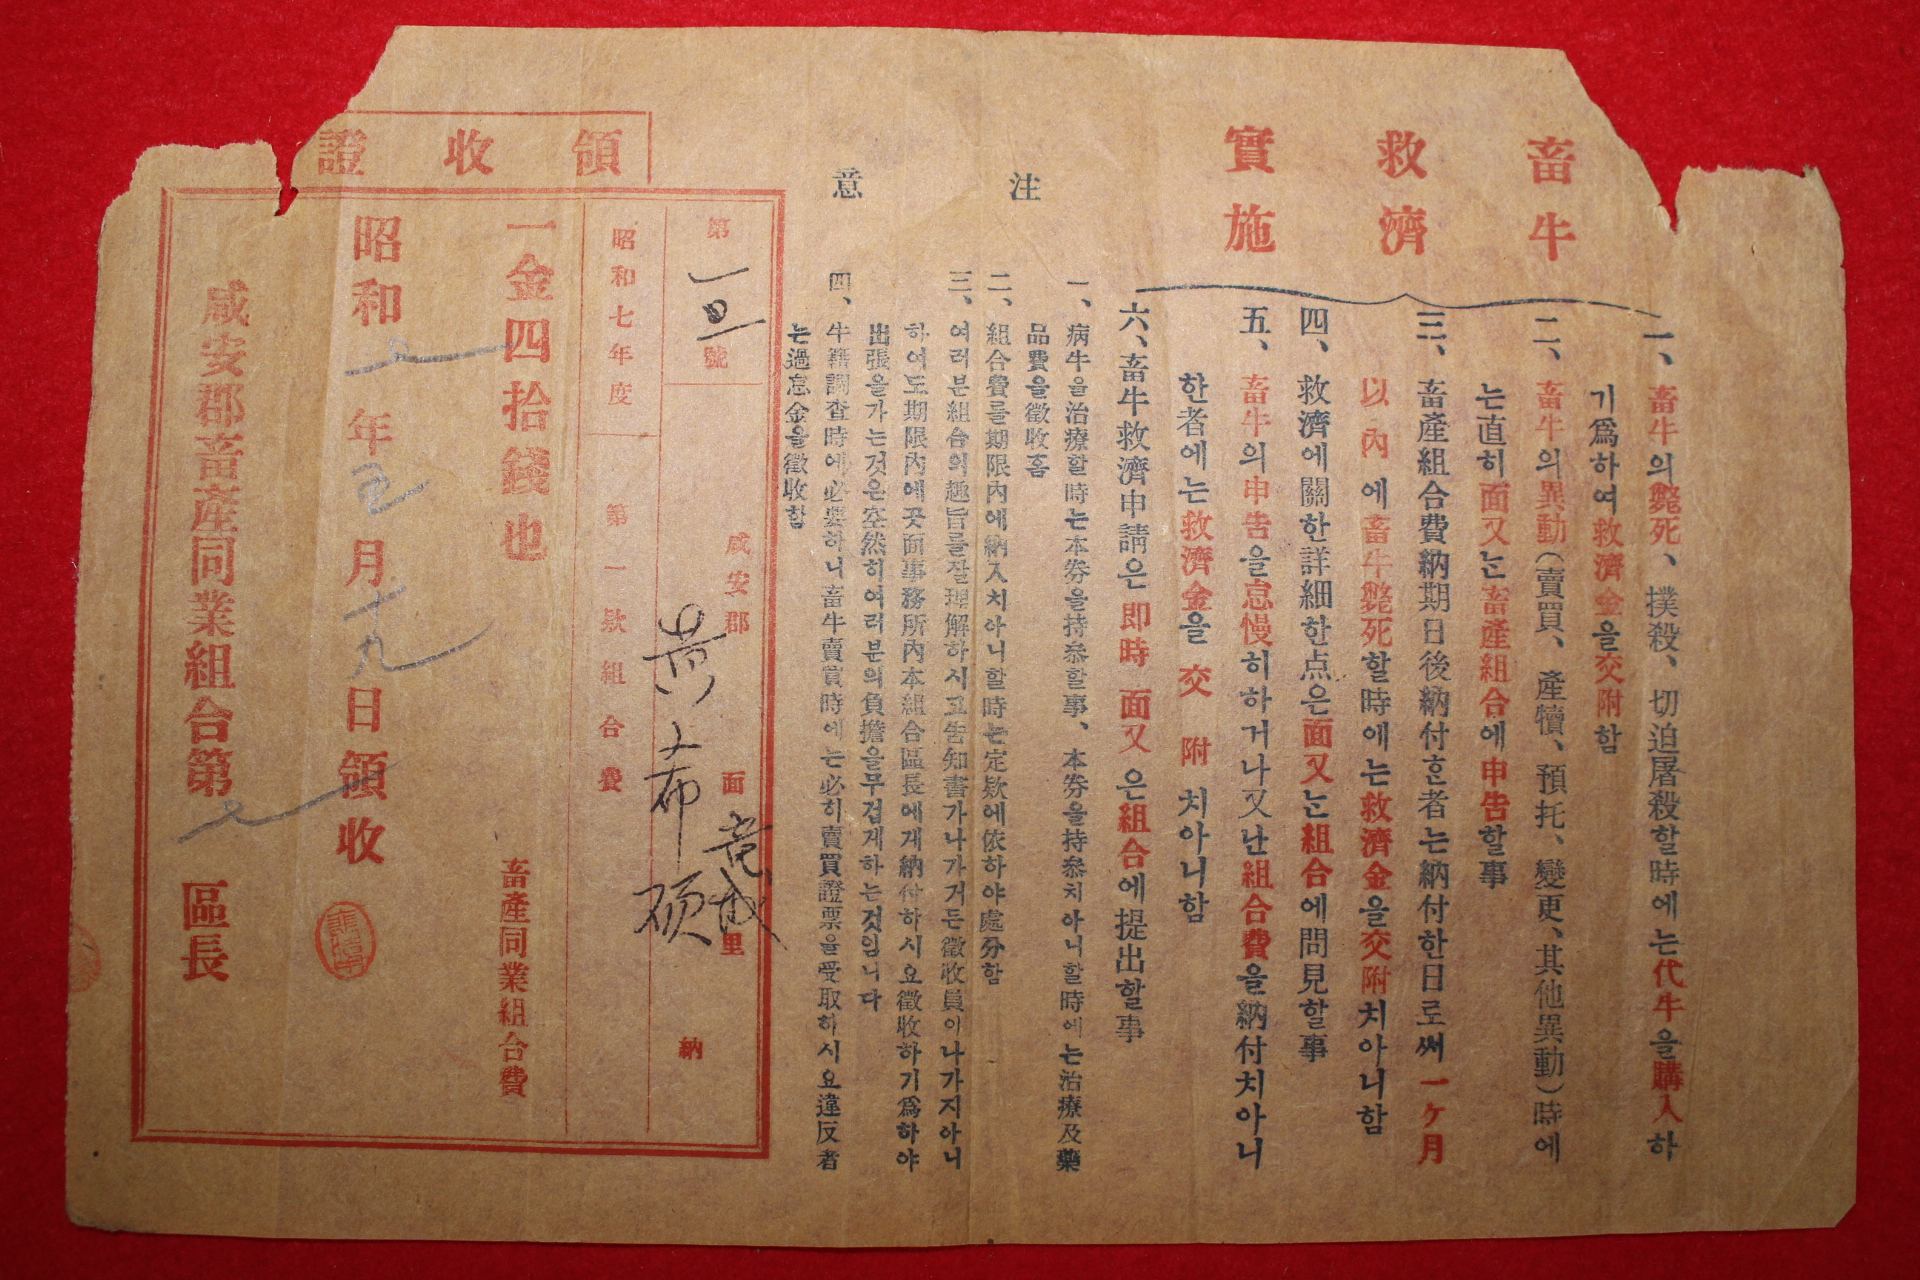 畜牛
救濟
實施
一、畜牛의斃死、撲殺、切迫屠殺할時에는代牛을購入하
기爲하여救濟金을交附함
二、畜牛의異動(賣買、產犢、預托、變更、其他異動)時에
는直히面又는畜產組合에申告할事
三、畜產組合費納期日後納付한者는納付한日로써一ケ月
以內에畜牛斃死할時에는救濟金을交附치아니함
四、救濟에關한詳細한点은面又는組合에問見할事
五、畜牛의申告을怠慢히하거나又난組合費을納付치아니
한者에는救濟金을交附치아니함
六、畜牛救濟申請은卽時面又은組合에提出할事
注意
一、病牛을治療할時는本券을持參할事、本券을持參치아니할時에는治療及藥
品費을徵收홈
二、組合費를期限內에納入치아니할時는定欵에依하야處分함
三、여러분組合의趣旨를잘理解하시고告知書가나가거든徵收員이나가지아니
하여도期限內에곳面事務所內本組合區長에게納付하시요徵收하기爲하야
出張을가는것은空然히여러분의負擔을무겁게하는것임니다
四、牛籍調査時에必要하니畜牛賣買時에는必히賣買證票을受取하시요違反者
는過怠金을徵收함
領收證
第 號
咸安郡 面 里
黃 希 碩 納
昭和七年度 第一欵組合費
一金四拾錢也
畜產同業組合費
昭和 年 月十九日領收
咸安郡畜產同業組合第 區長